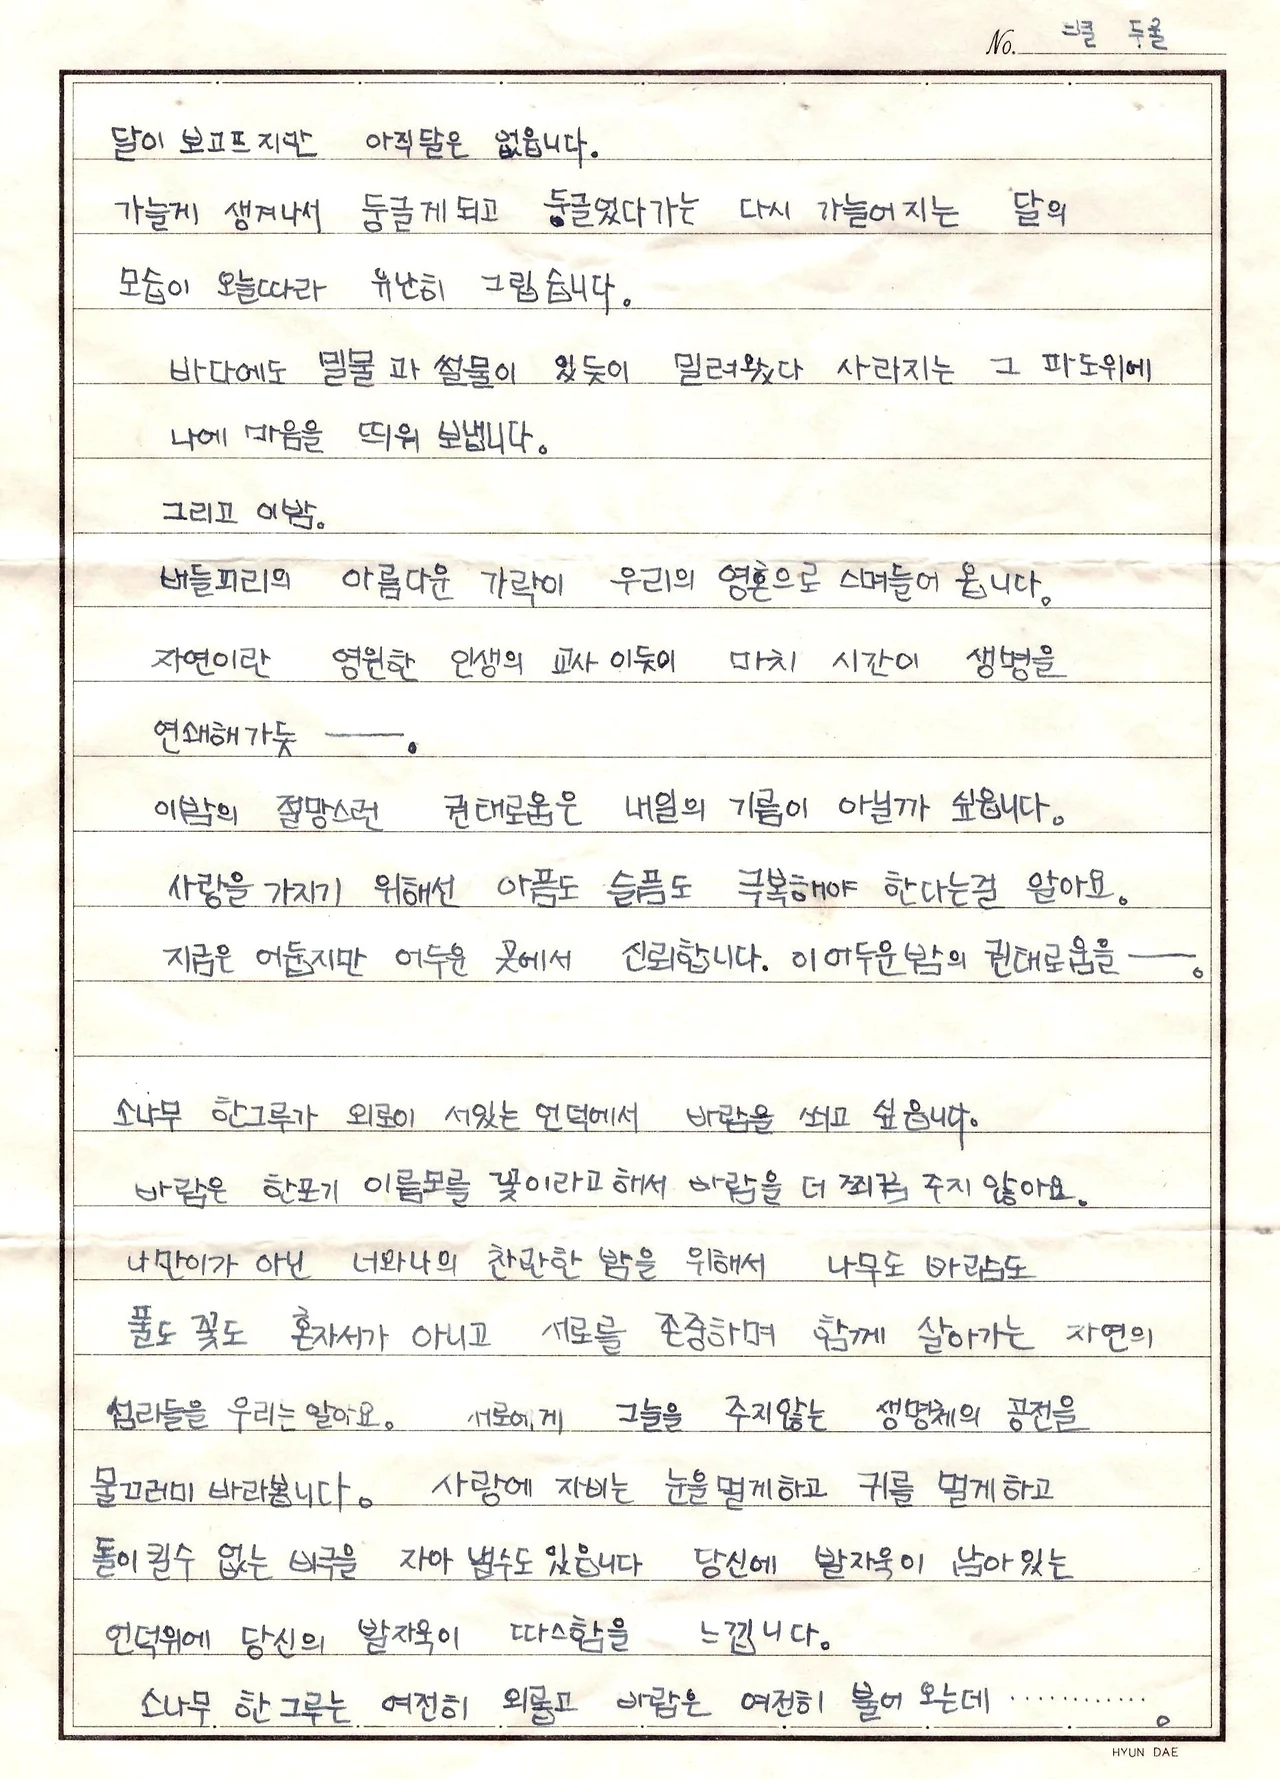 No. 별 두울
달이 보고프지만 아직달은 없읍니다.
가늘게 생겨나서 둥글게되고 둥글었다가는 다시 가늘어지는 달의
모습이 오늘따라 유난히 그립습니다.
바다에도 밀물과 썰물이 있듯이 밀려왔다 사라지는 그 파도위에
나에 마음을 띄워 보냅니다.
그리고 이밤.
버들피리의 아름다운 가락이 우리의 영혼으로 스며들어 옵니다.
자연이란 영원한 인생의 교사이듯이 마치 시간이 생명을
연쇄해가듯 ——.
이밤의 절망스런 권태로움은 내일의 기름이 아닐까 싶읍니다.
사랑을 가지기 위해선 아픔도 슬픔도 극복해야 한다는걸 알아요.
지금은 어둡지만 어두운 곳에서 신뢰합니다. 이어두운밤의 권태로움을 ——.
소나무 한그루가 외로이 서있는 언덕에서 바람을 쐬고 싶읍니다.
바람은 한포기 이름모를 꽃이라고해서 바람을 더 쬐끔 주지 않아요.
나만이가 아닌 너와나의 찬란한 밤을 위해서 나무도 바람도
풀도 꽃도 혼자서가 아니고 서로를 존중하며 함께 살아가는 자연의
섭리들을 우리는 알아요. 서로에게 그늘을 주지않는 생명체의 공전을
물끄러미 바라봅니다. 사랑에 자비는 눈을멀게하고 귀를 멀게하고
돌이킬수 없는 비극을 자아 낼수도있읍니다 당신에 발자욱이 남아있는
언덕위에 당신의 발자욱이 따스함을 느낍니다.
소나무 한그루는 여전히 외롭고 바람은 여전히 불어 오는데 ············.
HYUN DAE